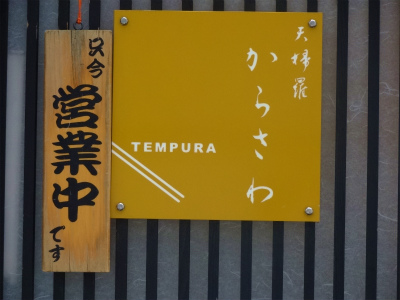 只今
営業中
です
天婦羅
からさわ
TEMPURA